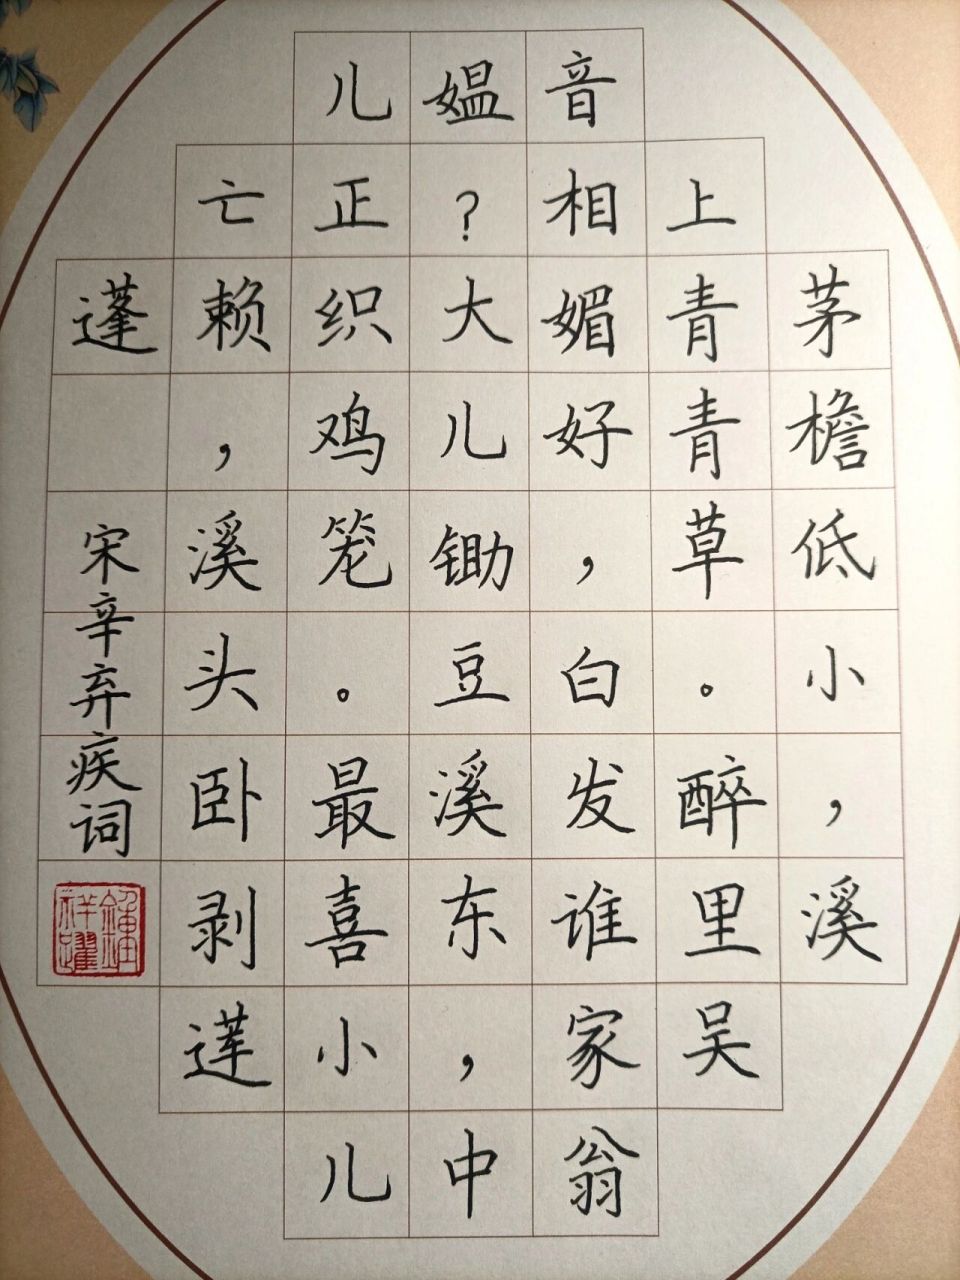 茅檐低小，溪
上青青草。醉里吴
音相媚好，白发谁家翁
媪？大儿锄豆溪东，中
儿正织鸡笼。最喜小儿
亡赖，溪头卧剥莲
蓬
宋辛弃疾词